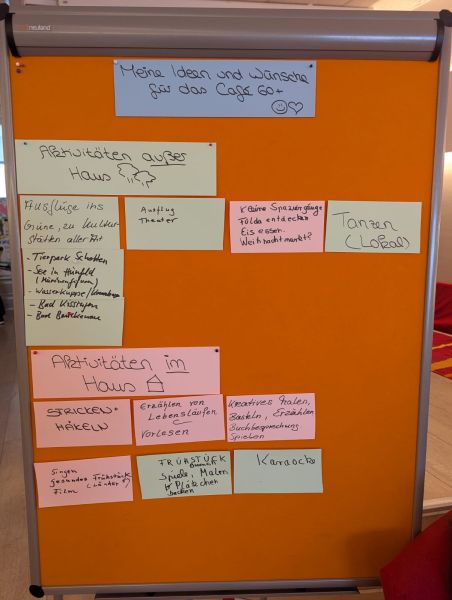 neuland
Meine Ideen und Wünsche
für das Café 60+
Aktivitäten außer
Haus
Ausflüge ins
Grüne, zu Kultur-
stätten aller Art
Ausflug
Theater
Kleine Spaziergänge
Fulda entdecken
Eis essen.
Weihnachtmarkt?
Tanzen
(Lokal)
- Tierpark Schotten
- See in Hünfeld
- Wasserkuppe/
- Bad Kissingen
- Bad
Aktivitäten im
Haus
STRICKEN+
HÄKELN
Erzählen von
Lebensläufen
Vorlesen
Kreatives Malen,
Basteln, Erzählen
Buchbesprechung
Spielen
Singen
gesundes Frühstück
Film (Länder?)
FRÜHSTÜCK
Brunch
Spiele, Malen
Plätzchen
backen
Karaocke